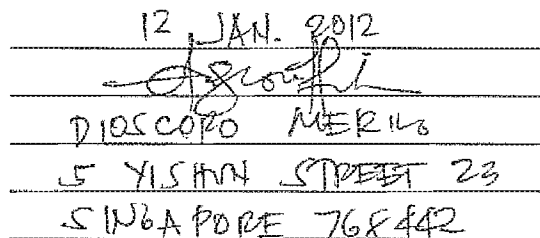 12 JAN. 2012
DIOSCORO MERILO
5 YISHUN STREET 23
SINGAPORE 768442